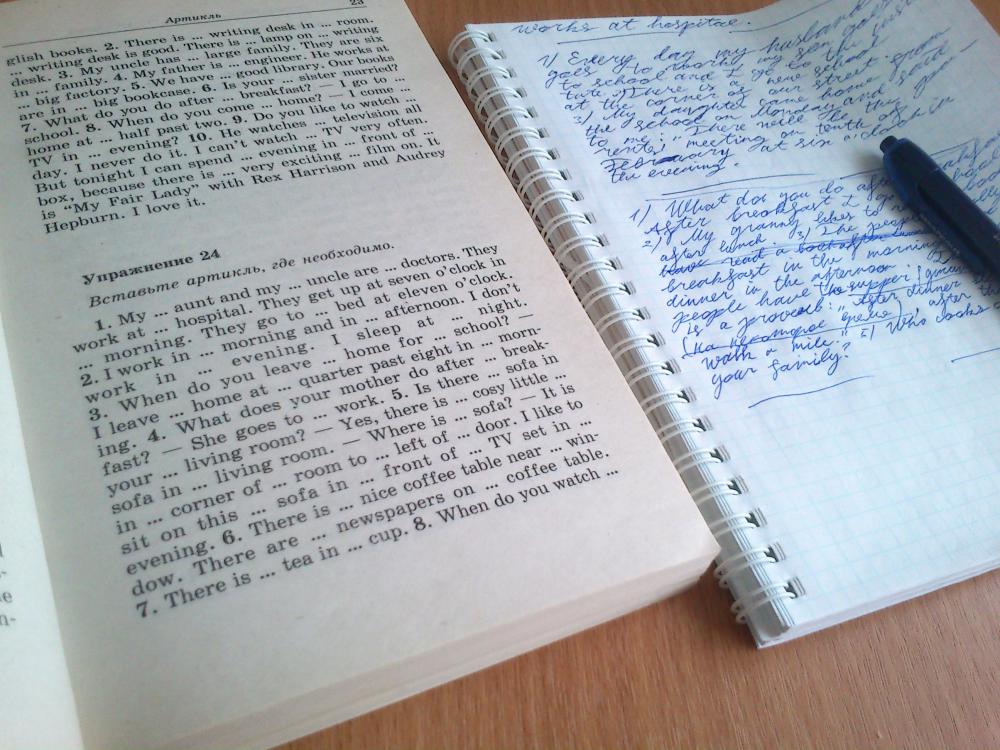 Артикль
23
glish books. 2. There is ... writing desk in ... room.
... writing desk is good. There is ... lamp on ... writing
desk. 3. My uncle has ... large family. They are six
in ... family. 4. My father is ... engineer. He works at
... big factory. 5. We have ... good library. Our books
are in ... big bookcase. 6. Is your ... sister married?
7. What do you do after ... breakfast? — I go to ...
school. 8. When do you come ... home? — I come ...
home at ... half past two. 9. Do you like to watch ...
TV in ... evening? 10. He watches ... television all
day. I never do it. I can't watch ... TV very often.
But tonight I can spend ... evening in ... front of ...
box, because there is ... very exciting ... film on. It
is “My Fair Lady” with Rex Harrison and Audrey
Hepburn. I love it.
Упражнение 24
Вставьте артикль, где необходимо.
1. My ... aunt and my ... uncle are ... doctors. They
work at ... hospital. They get up at seven o'clock in
... morning. They go to ... bed at eleven o'clock.
2. I work in ... morning and in ... afternoon. I don't
work in ... evening. I sleep at ... night.
3. When do you leave ... home for ... school? —
I leave ... home at ... quarter past eight in ... morn-
ing. 4. What does your mother do after ... break-
fast? — She goes to ... work. 5. Is there ... sofa in
your ... living room? — Yes, there is ... cosy little ...
sofa in ... living room. — Where is ... sofa? — It is
in ... corner of ... room to ... left of ... door. I like to
sit on this ... sofa in ... front of ... TV set in ...
evening. 6. There is ... nice coffee table near ... win-
dow. There are ... newspapers on ... coffee table.
7. There is ... tea in ... cup. 8. When do you watch ...
works at hospital.
1) Every day my husband
goes to work, my son goes
to school and I go to the insti
tute. There is a new school
at the corner of our street.
3) My daughter came home from
the school on Monday and said
to me: "There will be a
rents' meeting on tenth of
February at six o'clock in
the evening.
1) What do you do after
After breakfast I go
2) My granny likes to
after lunch. 3) The people
have read a book after
breakfast in the morning
dinner in the afternoon.
people have the supper
is a proverb: "After dinner
after
walk a mile." 5) Who cooks
your family?